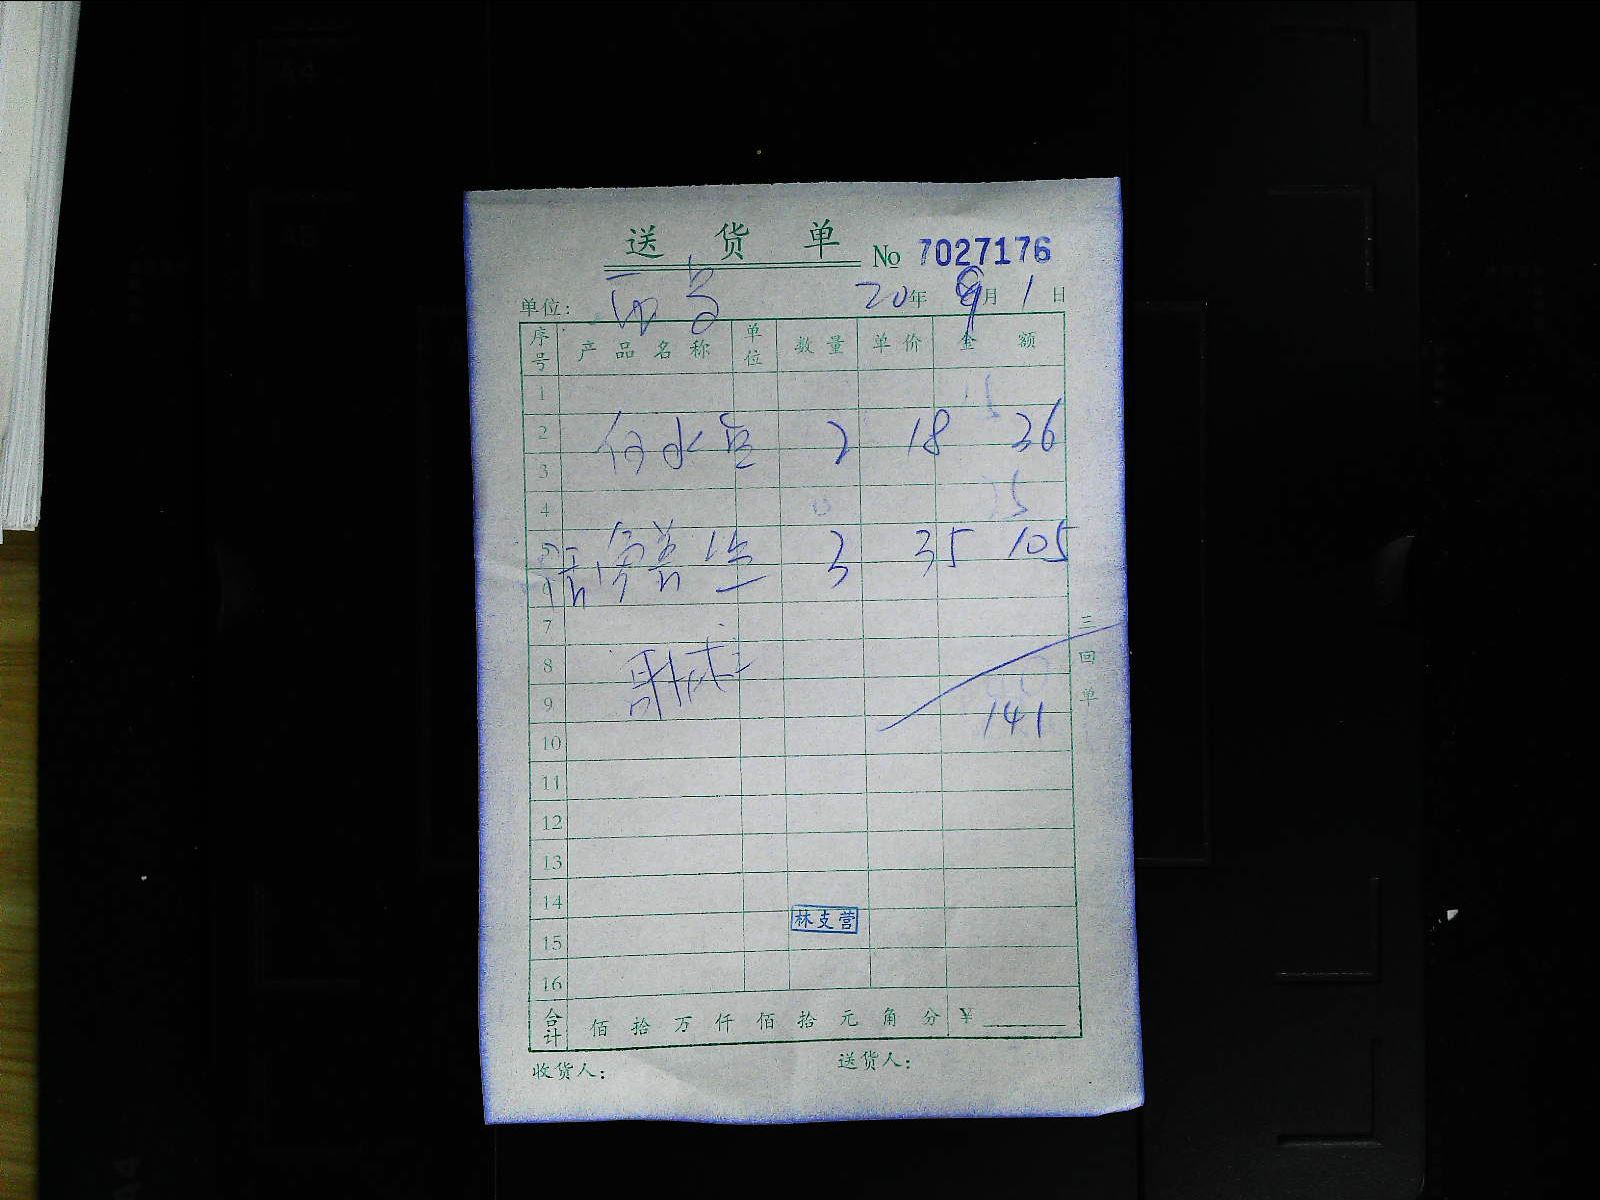 送货单 No 7027176
单位: 20年 9月 1日
序号 产品名称 单位 数量 单价 金额
1
2 2 18 36
3
4
5 3 35 105
7
8
9 141
10
11
12
13
14
林支营
15
16
合计 佰 拾 万 仟 佰 拾 元 角 分 ¥
收货人: 送货人:
三回单